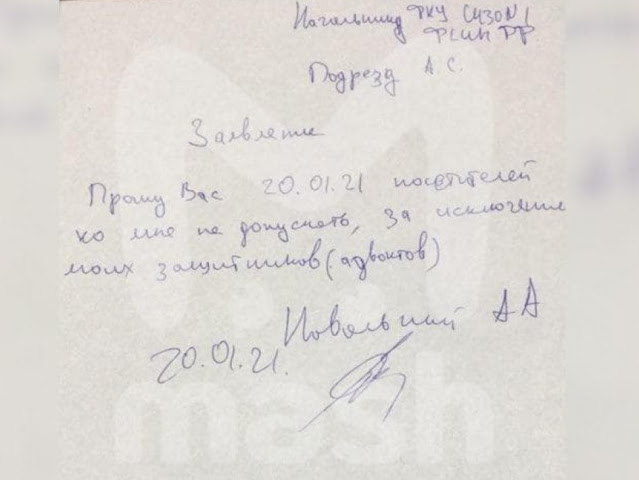 Начальнику ФКУ СИЗО N1
ФСИН РФ
Подрезд А. С.
Заявление
Прошу Вас 20.01.21 посетителей
ко мне не допускать, за исключение
моих защитников (адвоктов)
Навальный А А
20.01.21.
mash